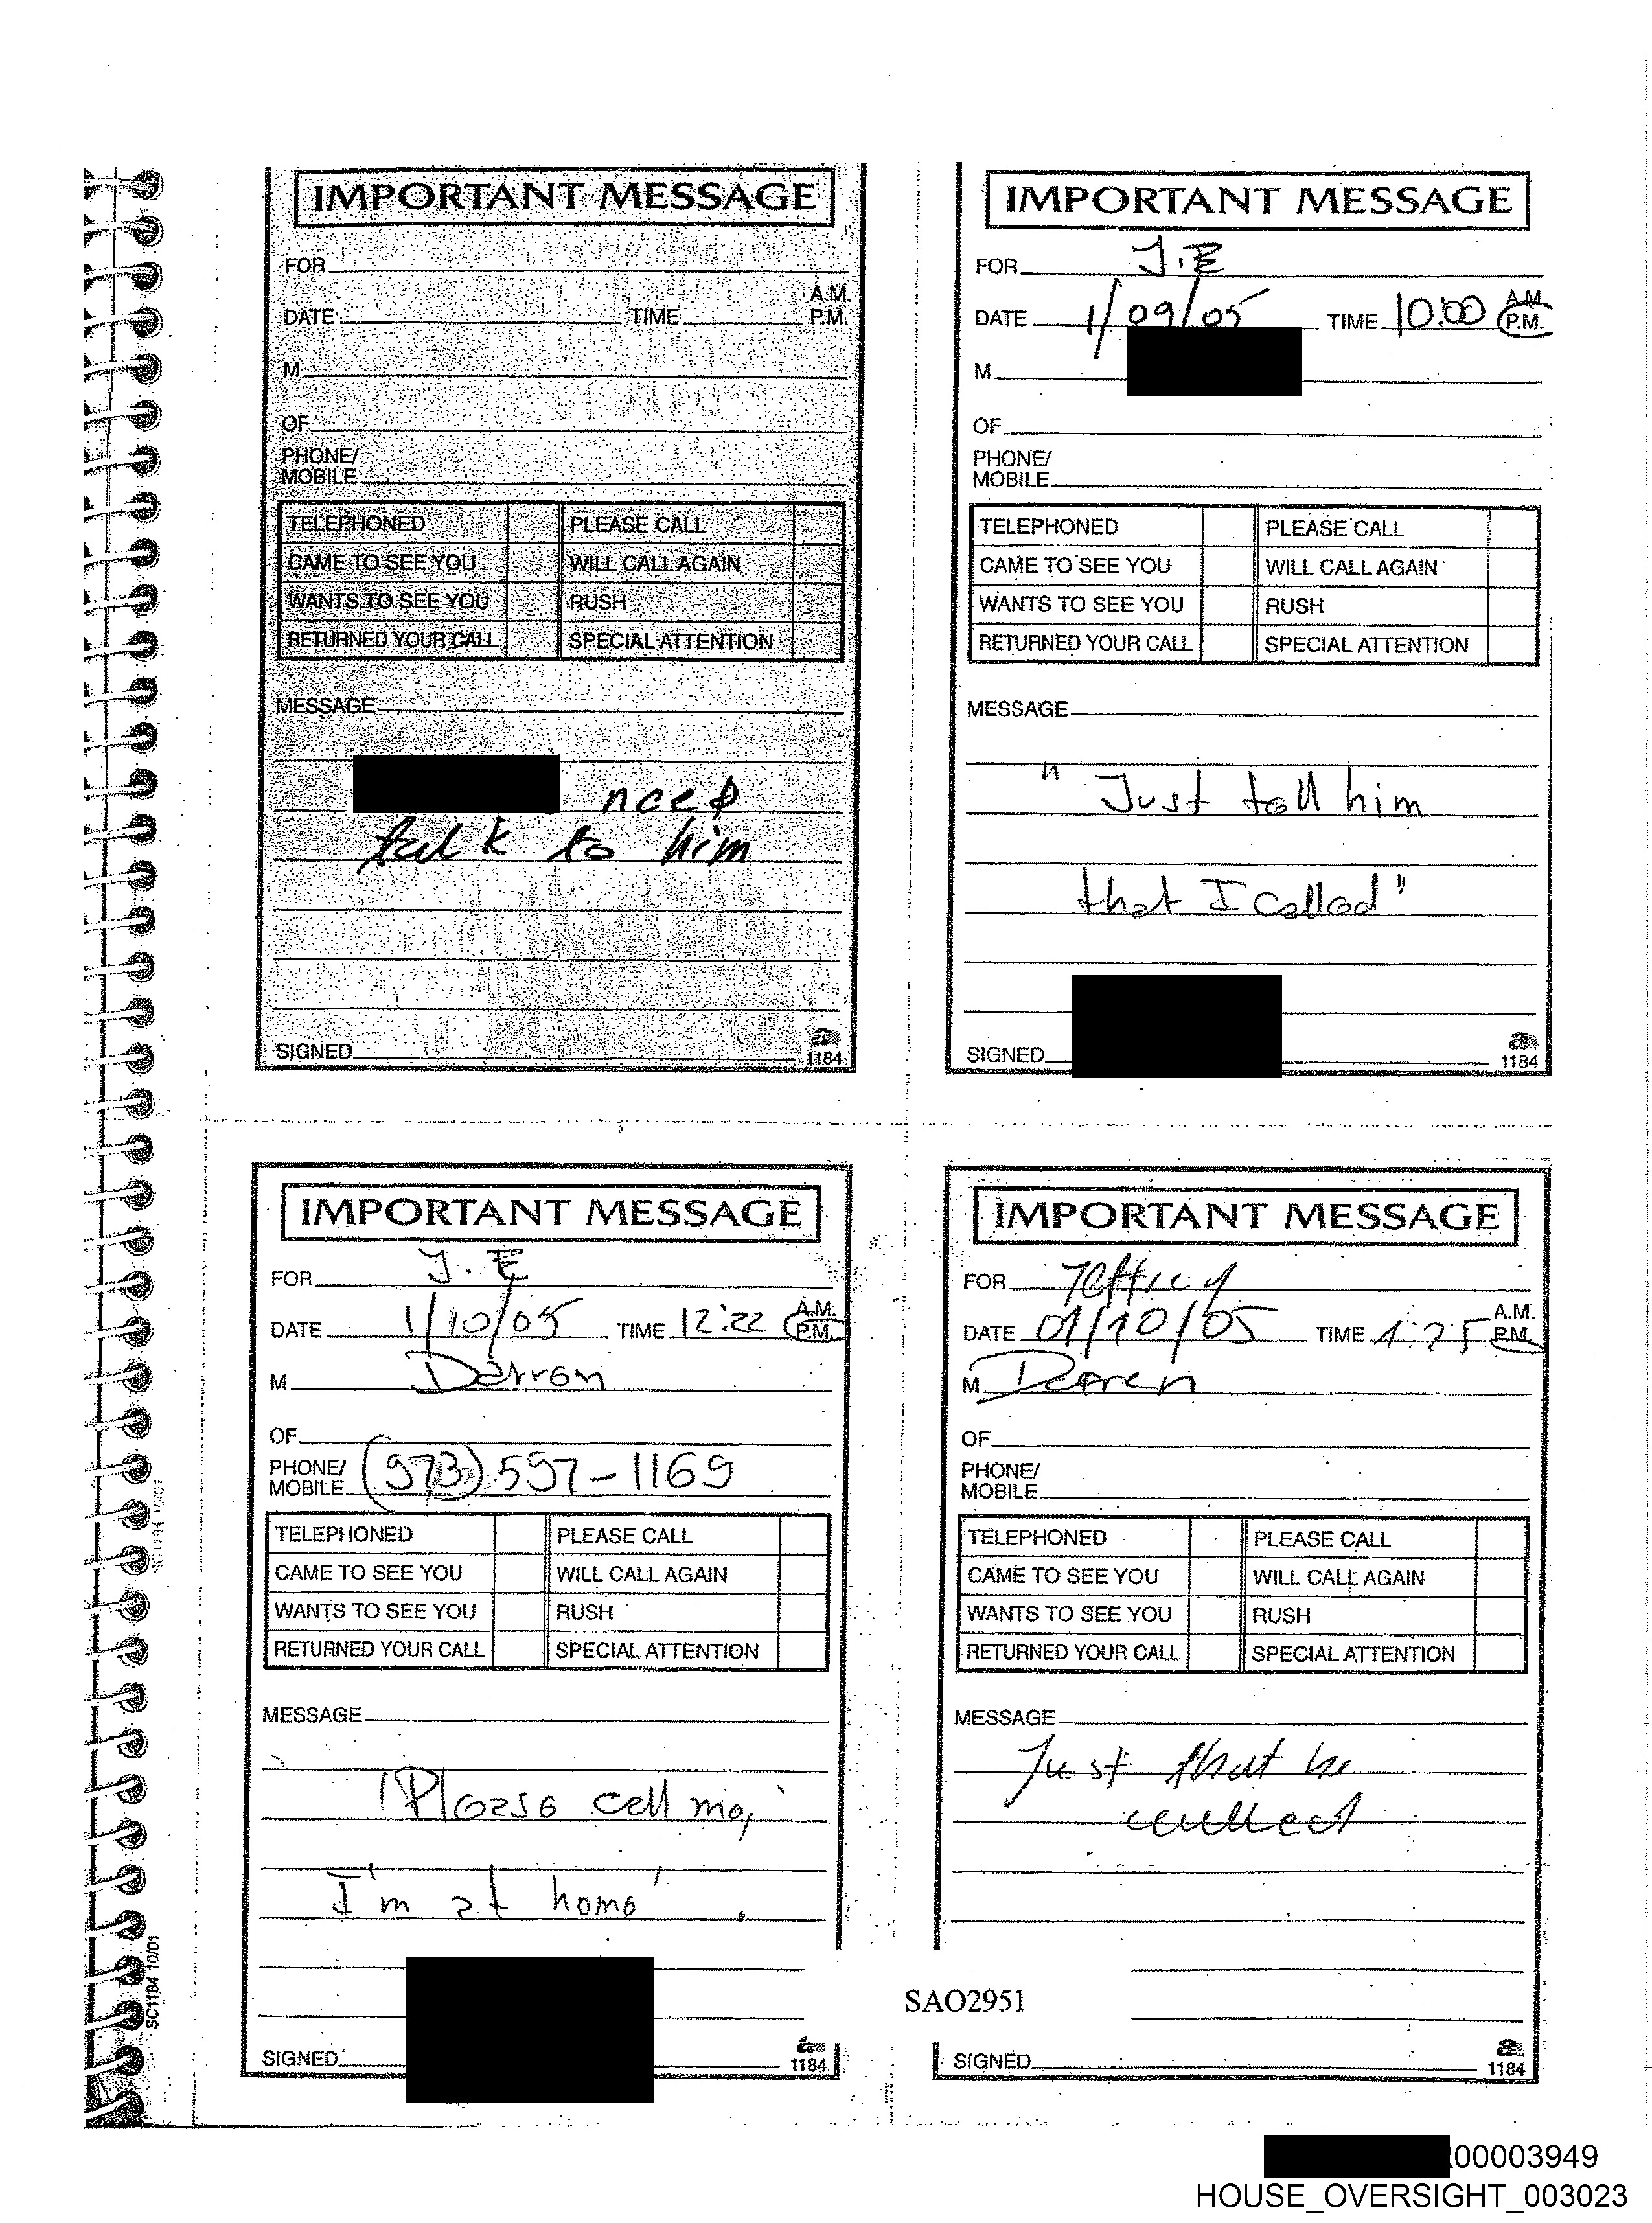 IMPORTANT MESSAGE
FOR
A.M.
DATE TIME P.M.
M
OF
PHONE/
MOBILE
TELEPHONED PLEASE CALL
CAME TO SEE YOU WILL CALL AGAIN
WANTS TO SEE YOU RUSH
RETURNED YOUR CALL SPECIAL ATTENTION
MESSAGE
need
talk to him
SIGNED
1184
IMPORTANT MESSAGE
FOR J.E
DATE 1/09/05 TIME 10:00 A.M.
P.M.
M
OF
PHONE/
MOBILE
TELEPHONED PLEASE CALL
CAME TO SEE YOU WILL CALL AGAIN
WANTS TO SEE YOU RUSH
RETURNED YOUR CALL SPECIAL ATTENTION
MESSAGE
" Just tell him
that I called"
SIGNED
1184
IMPORTANT MESSAGE
FOR J.E
DATE 1/10/05 TIME 12:22 A.M.
P.M.
M Darren
OF
PHONE/
MOBILE (973) 597-1169
TELEPHONED PLEASE CALL
CAME TO SEE YOU WILL CALL AGAIN
WANTS TO SEE YOU RUSH
RETURNED YOUR CALL SPECIAL ATTENTION
MESSAGE
"Please call me,
I'm at home".
SIGNED
1184
IMPORTANT MESSAGE
FOR Jeffrey
DATE 01/10/05 TIME 1:25 A.M.
P.M.
M Daren
OF
PHONE/
MOBILE
TELEPHONED PLEASE CALL
CAME TO SEE YOU WILL CALL AGAIN
WANTS TO SEE YOU RUSH
RETURNED YOUR CALL SPECIAL ATTENTION
MESSAGE
Just that he
called
SIGNED
1184
SC1184 10/01
SAO2951
00003949
HOUSE_OVERSIGHT_003023